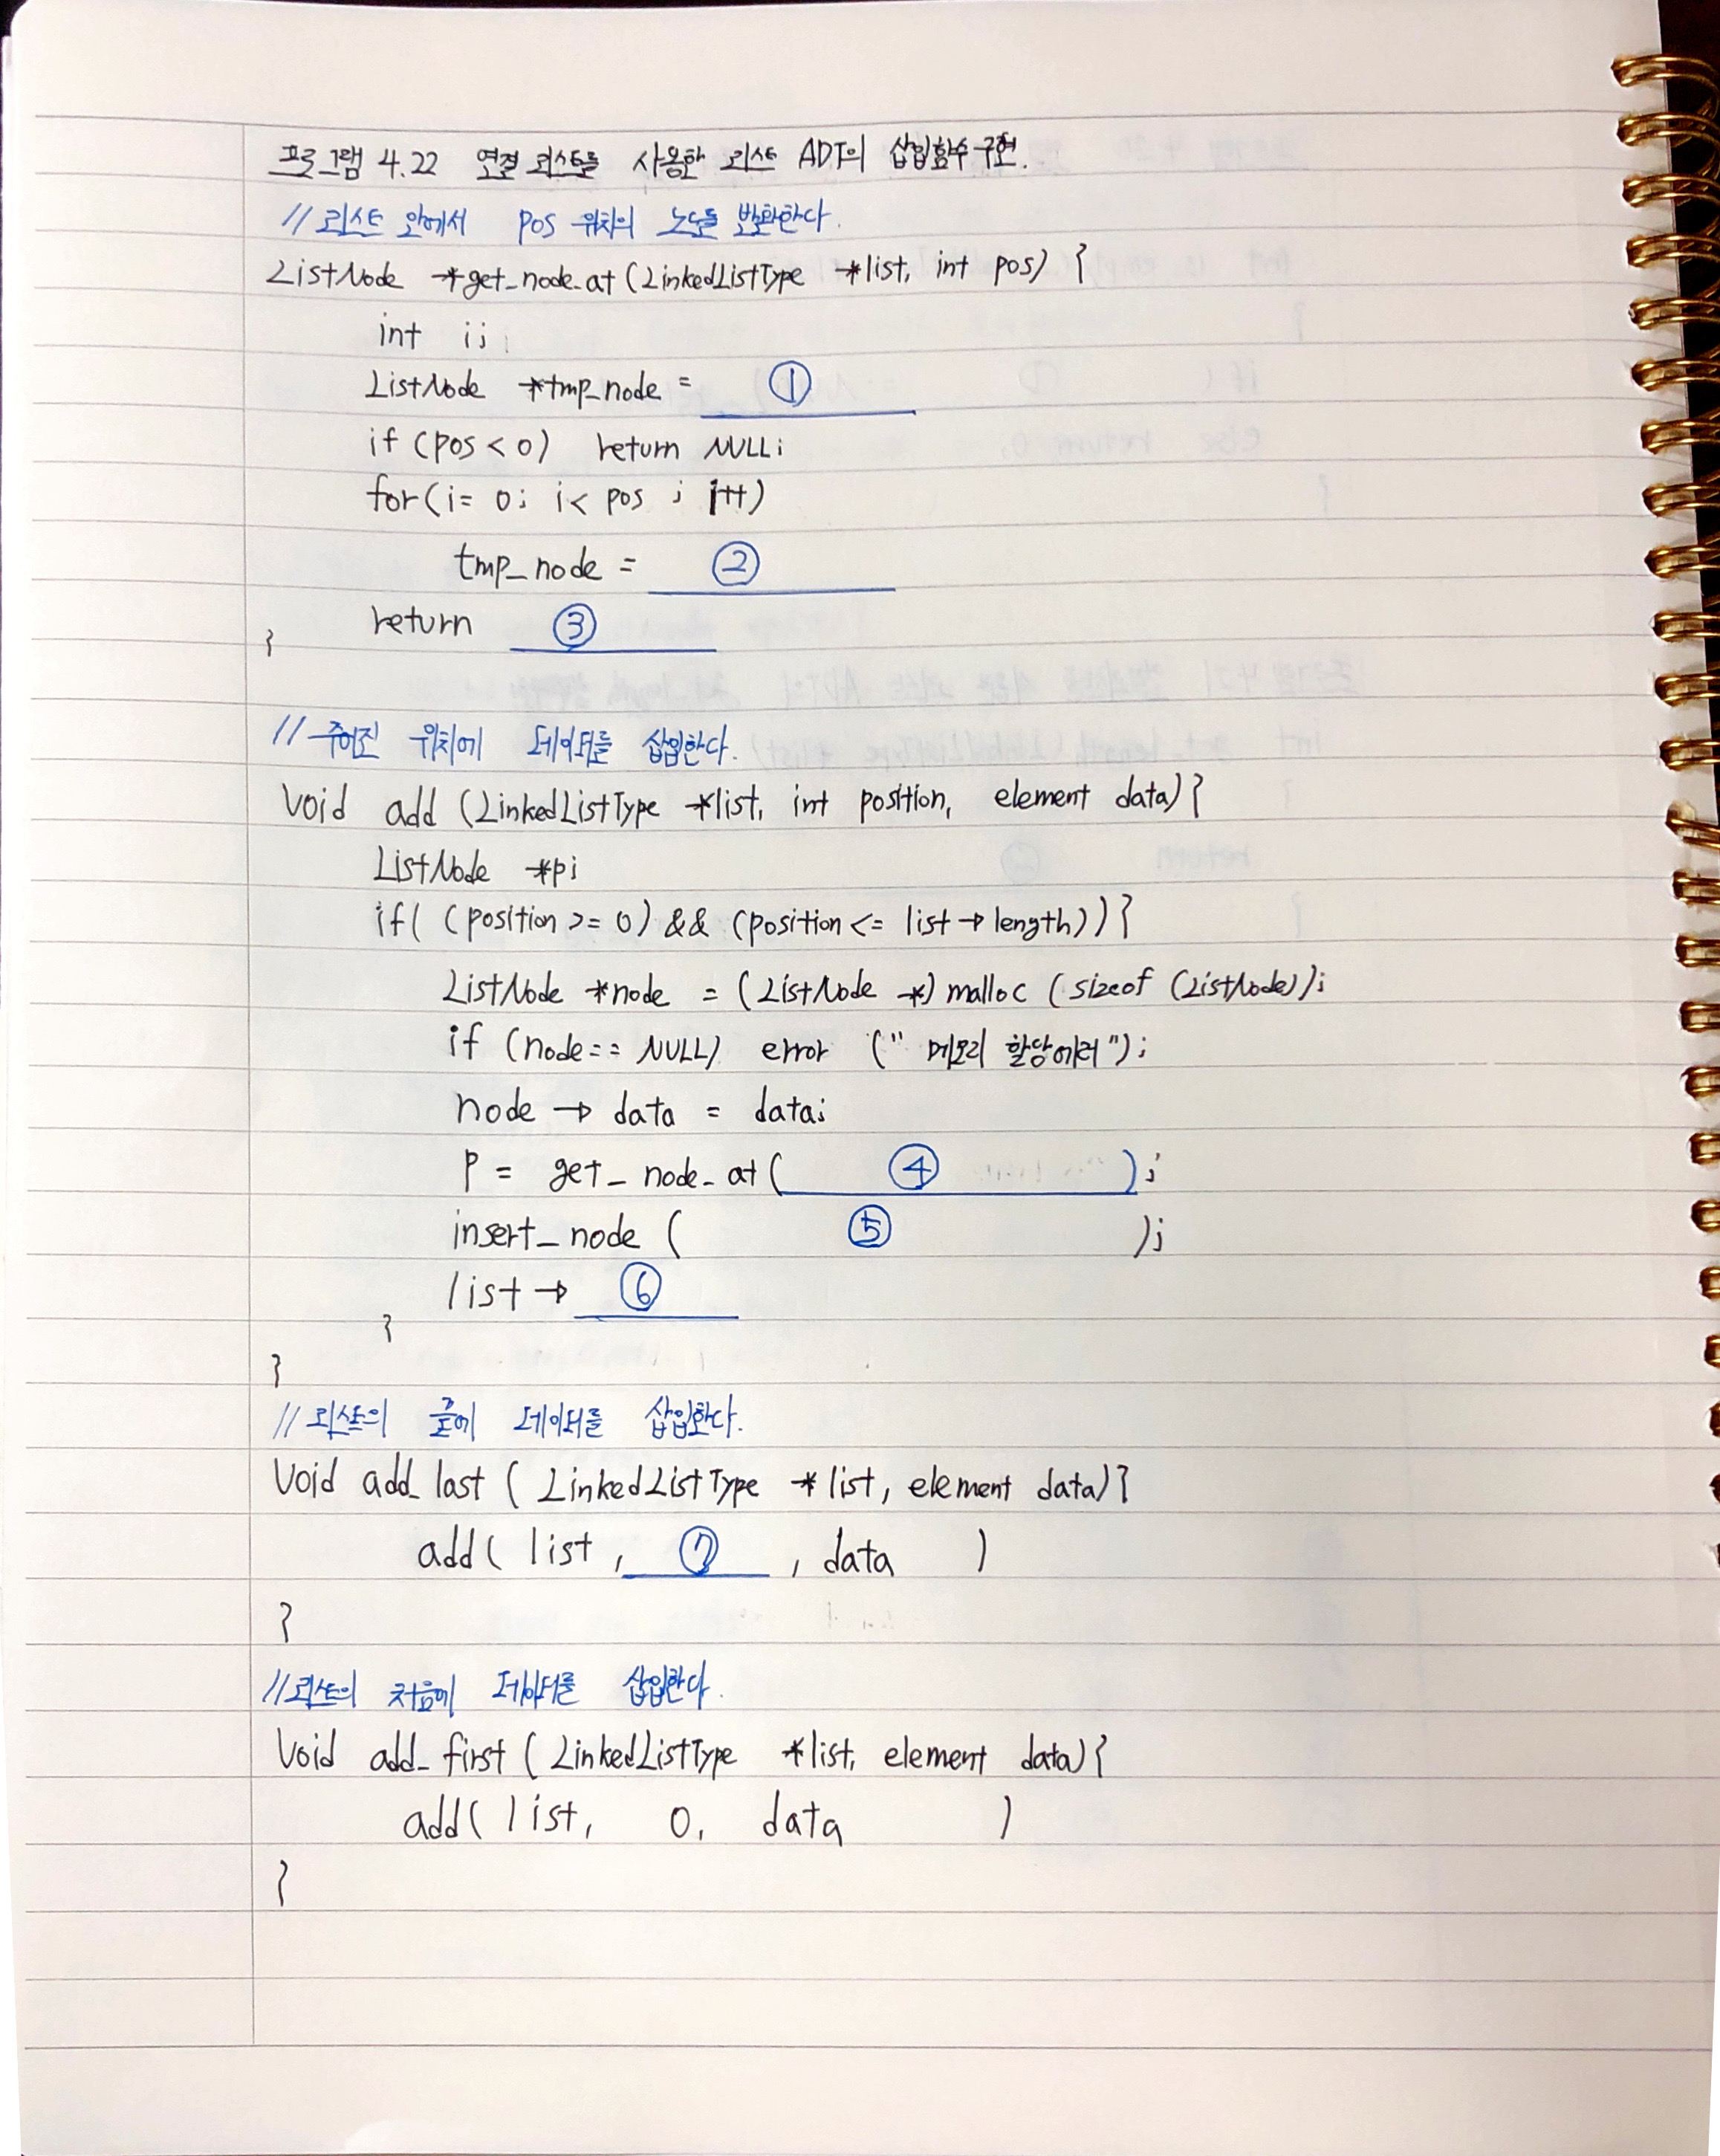 프로그램 4.22 연결 리스트를 사용한 리스트 ADT의 삽입함수 구현.
// 리스트 안에서 pos 위치의 노드를 반환한다.
ListNode *get_node_at (LinkedListType *list, int pos) {
int i;
ListNode *tmp_node = ①
if (pos < 0) return NULL;
for (i = 0; i < pos ; i++)
tmp_node = ②
return ③
}
// 주어진 위치에 데이터를 삽입한다.
Void add (LinkedListType *list, int position, element data) {
ListNode *p;
if( (position >= 0) && (position <= list → length)) {
ListNode *node = (ListNode *) malloc (sizeof (ListNode));
if (node == NULL) error (" 메모리 할당에러");
node → data = data;
P = get_node_at ( ④ );
insert_node ( ⑤ );
list → ⑥
}
}
// 리스트의 끝에 데이터를 삽입한다.
Void add_last ( LinkedListType *list, element data) {
add( list, ⑦ , data )
}
// 리스트의 처음에 데이터를 삽입한다.
Void add_first ( LinkedListType *list, element data) {
add( list, 0, data )
}